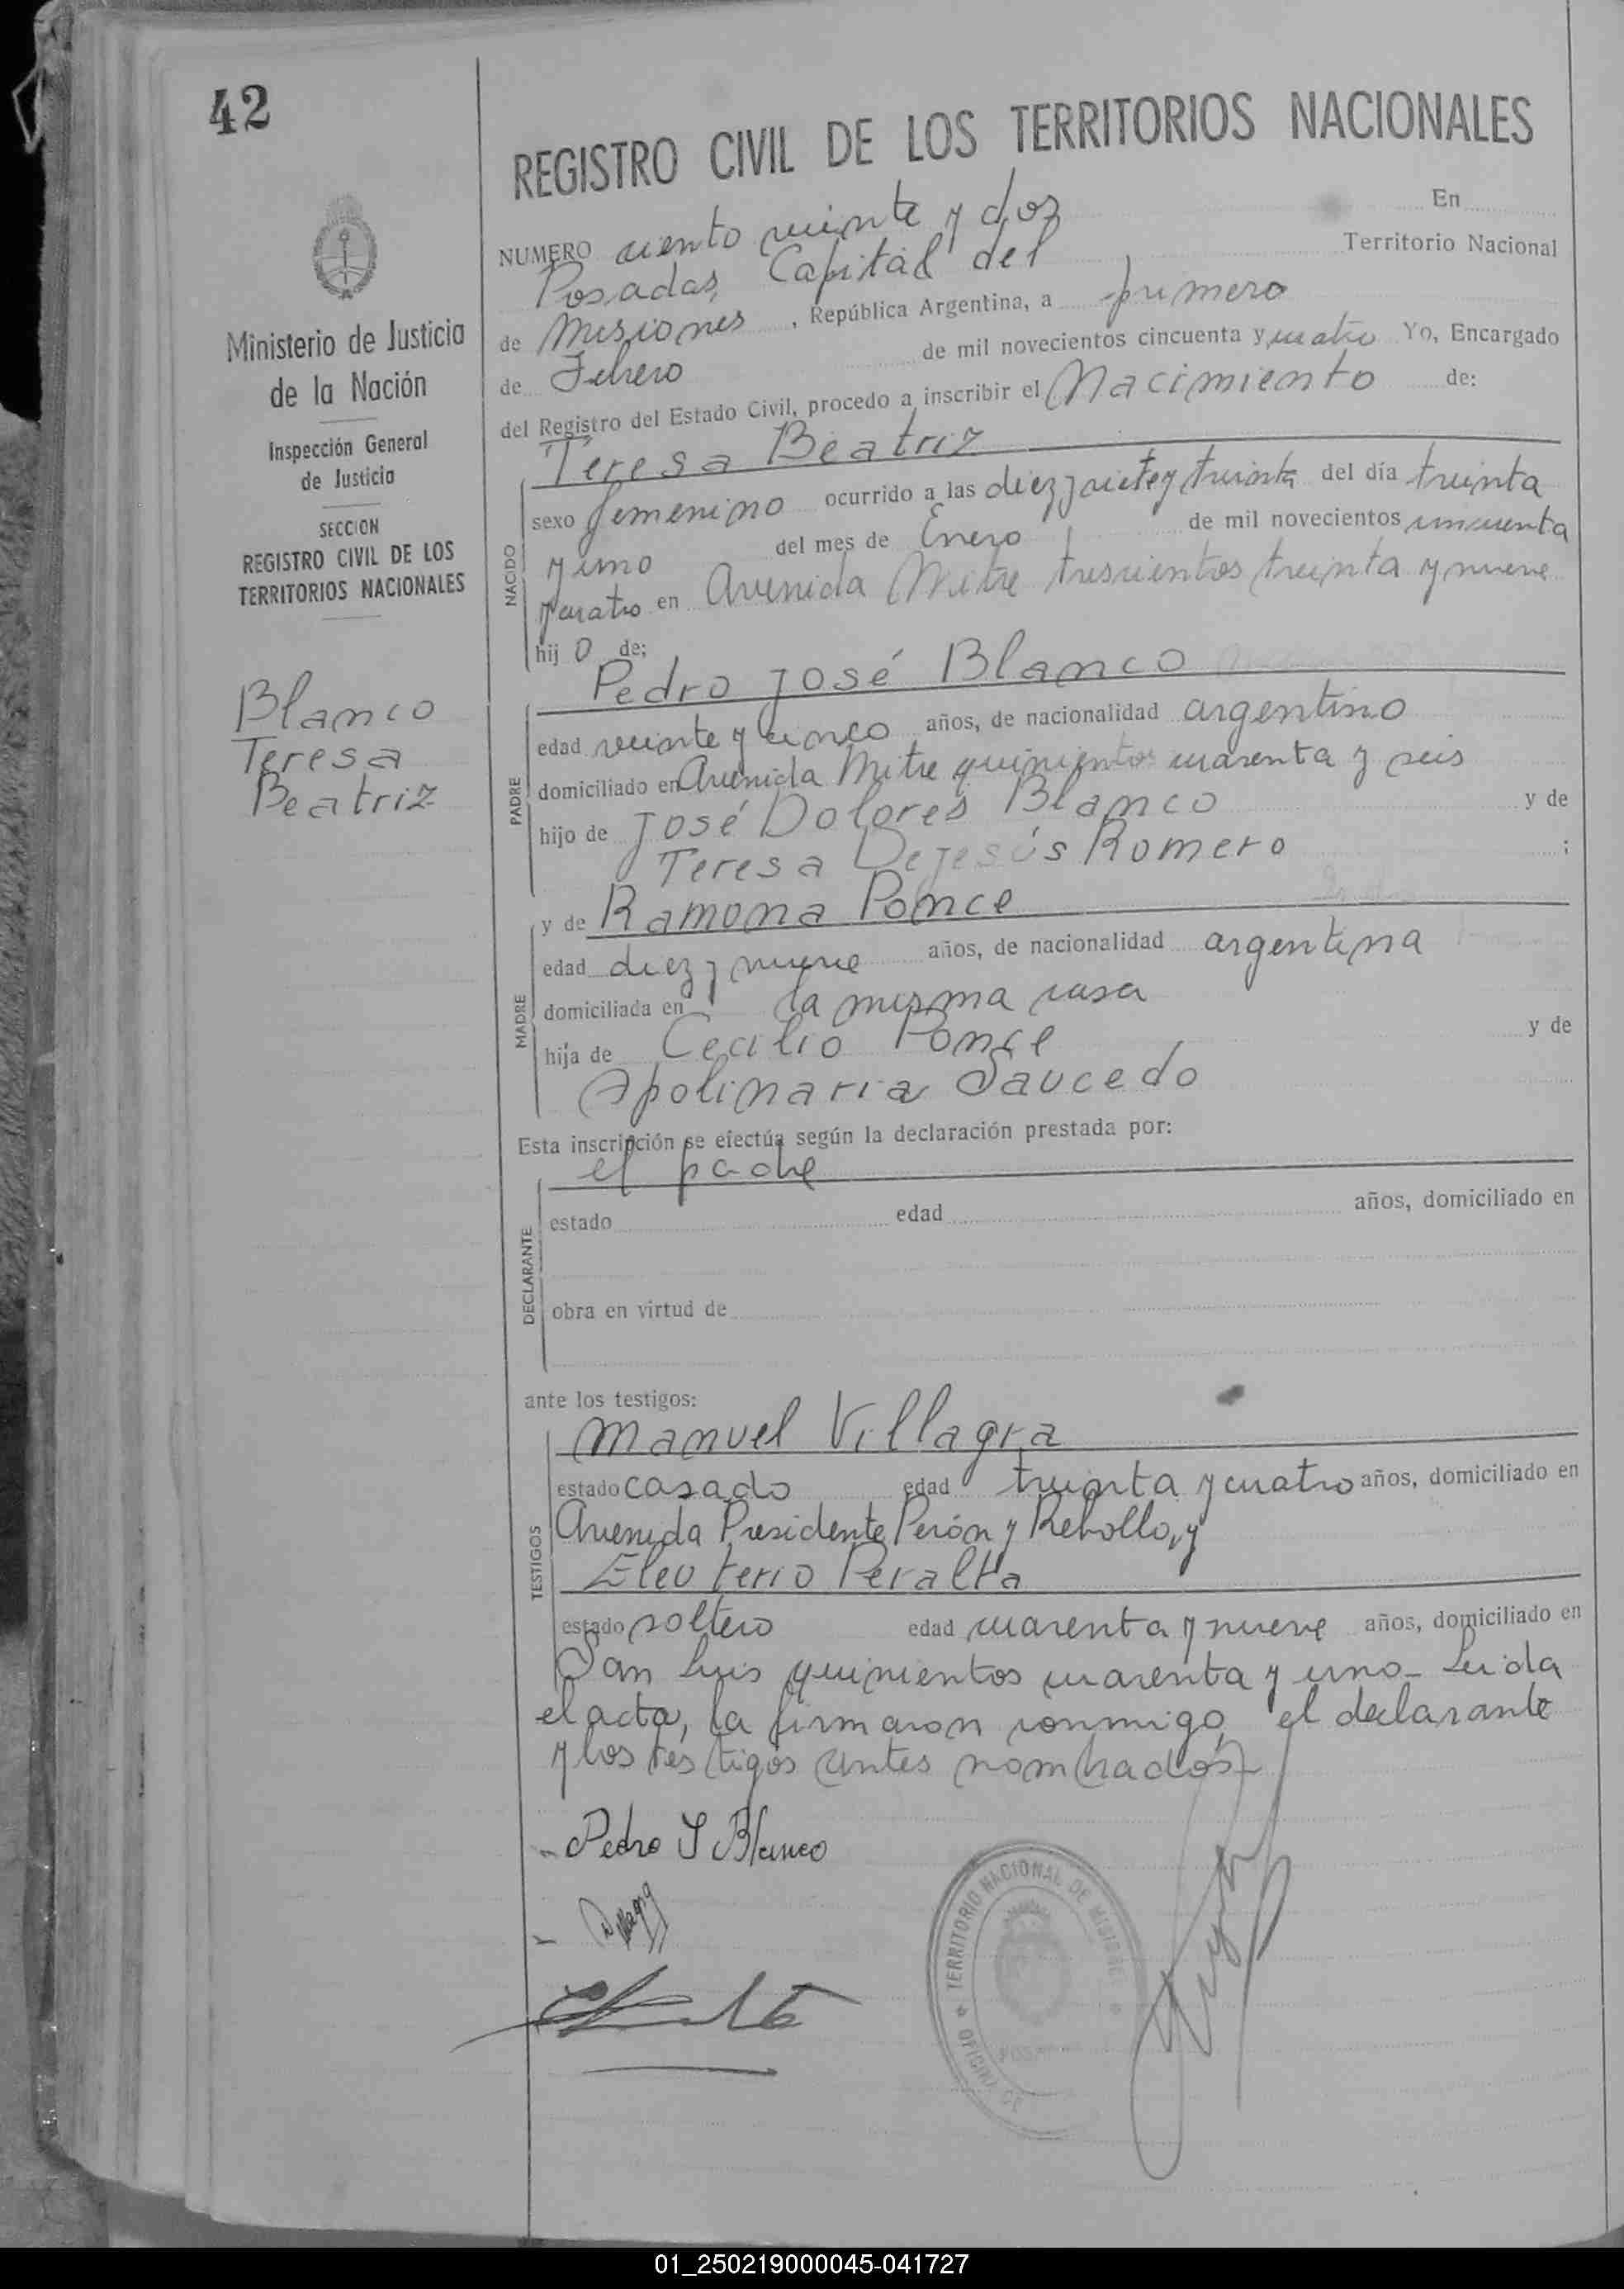 42
REGISTRO CIVIL DE LOS TERRITORIOS NACIONALES
Ministerio de Justicia
de la Nación
Inspección General
de Justicia
SECCION
REGISTRO CIVIL DE LOS
TERRITORIOS NACIONALES
Blanco
Teresa
Beatriz
NUMERO ciento veinte y dos En
Posadas, Capital del Territorio Nacional
de Misiones, República Argentina, a primero
de Febrero de mil novecientos cincuenta y cuatro Yo, Encargado
del Registro del Estado Civil, procedo a inscribir el Nacimiento de:
Teresa Beatriz
NACIDO
sexo femenino ocurrido a las diez y siete y treinta del día treinta
y uno del mes de Enero de mil novecientos cincuenta
y cuatro en Avenida Mitre trescientos treinta y nueve
hij o de;
Pedro José Blanco
PADRE
edad veinte y cinco años, de nacionalidad argentino
domiciliado en Avenida Mitre quinientos cuarenta y seis
hijo de José Dolores Blanco y de
Teresa Dejesús Romero ;
y de Ramona Ponce
MADRE
edad diez y nueve años, de nacionalidad argentina
domiciliada en la misma casa
hija de Cecilio Ponce y de
Apolinaria Saucedo
Esta inscripción se efectúa según la declaración prestada por:
el padre
DECLARANTE
estado edad años, domiciliado en
obra en virtud de
ante los testigos:
Manuel Villagra
TESTIGOS
estado casado edad treinta y cuatro años, domiciliado en
Avenida Presidente Perón y Rebollo, y
Eleuterio Peralta
estado soltero edad cuarenta y nueve años, domiciliado en
San Luis quinientos cuarenta y uno- Leida
el acta, la firmaron conmigo, el declarante
y los testigos antes nombrados-
Pedro J Blanco
TERRITORIO NACIONAL DE MISIONES
OFICINA DE
01_250219000045-041727